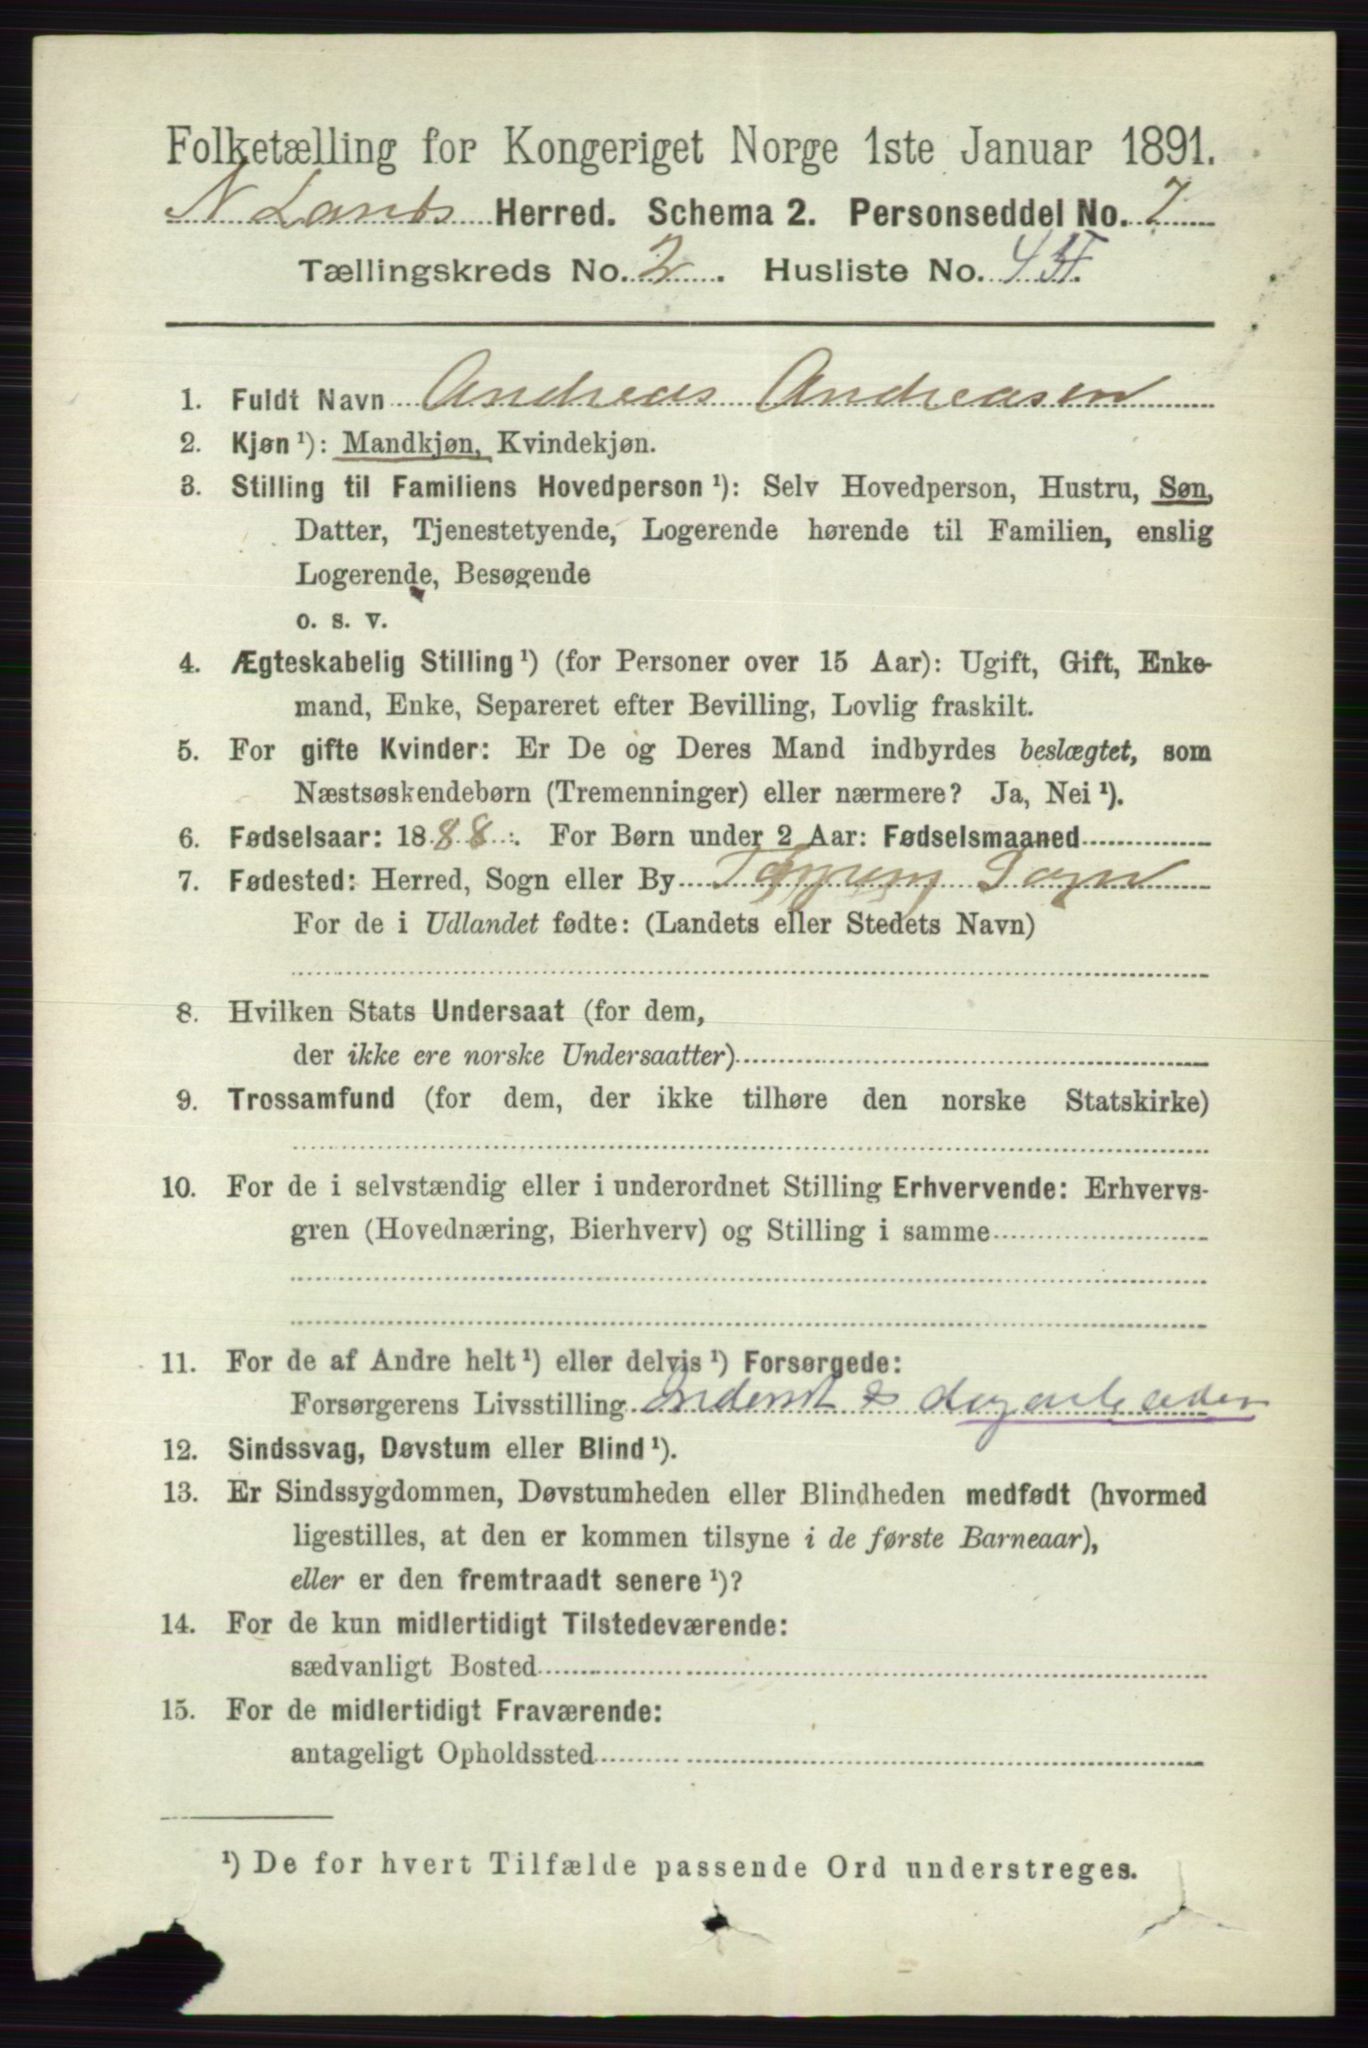 Folketælling for Kongeriget Norge 1ste Januar 1891.
N Lands Herred. Schema 2. Personseddel No. 7
Tællingskreds No. 2. Husliste No.
1. Fuldt Navn Andreas Andreasen
2. Kjøn ¹): Mandkjøn, Kvindekjøn.
3. Stilling til Familiens Hovedperson ¹): Selv Hovedperson, Hustru, Søn,
Datter, Tjenestetyende, Logerende hørende til Familien, enslig
Logerende, Besøgende
o. s. v.
4. Ægteskabelig Stilling ¹) (for Personer over 15 Aar): Ugift, Gift, Enke-
mand, Enke, Separeret efter Bevilling, Lovlig fraskilt.
5. For gifte Kvinder: Er De og Deres Mand indbyrdes beslægtet, som
Næstsøskendebørn (Tremenninger) eller nærmere? Ja, Nei ¹).
6. Fødselsaar: 1888. For Børn under 2 Aar: Fødselsmaaned
7. Fødested: Herred, Sogn eller By Sogn
For de i Udlandet fødte: (Landets eller Stedets Navn)
8. Hvilken Stats Undersaat (for dem,
der ikke ere norske Undersaatter)
9. Trossamfund (for dem, der ikke tilhøre den norske Statskirke)
10. For de i selvstændig eller i underordnet Stilling Erhvervende: Erhvervs-
gren (Hovednæring, Bierhverv) og Stilling i samme
11. For de af Andre helt ¹) eller delvis ¹) Forsørgede:
Forsørgerens Livsstilling Inderst & dagarbeider
12. Sindssvag, Døvstum eller Blind ¹).
13. Er Sindssygdommen, Døvstumheden eller Blindheden medfødt (hvormed
ligestilles, at den er kommen tilsyne i de første Barneaar),
eller er den fremtraadt senere ¹)?
14. For de kun midlertidigt Tilstedeværende:
sædvanligt Bosted
15. For de midlertidigt Fraværende:
antageligt Opholdssted
¹) De for hvert Tilfælde passende Ord understreges.